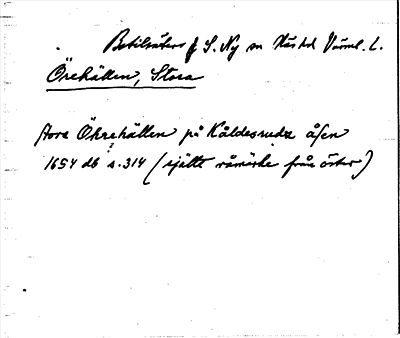 Bebilsäters f S. Ny sn Näs hd Värml. L.
Örehällen, Stora
stora Öhrehällen på Kåldesrudz åsen
1654 db s. 314 (sjätte råmärke från öster)